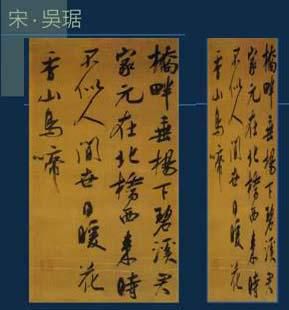 宋·吳琚
橋畔垂楊下碧溪君
家元在北橋西來時
不似人間世日暖花
香山鳥啼
橋畔垂楊下碧溪君
家元在北橋西來時
不似人間世日暖花
香山鳥啼